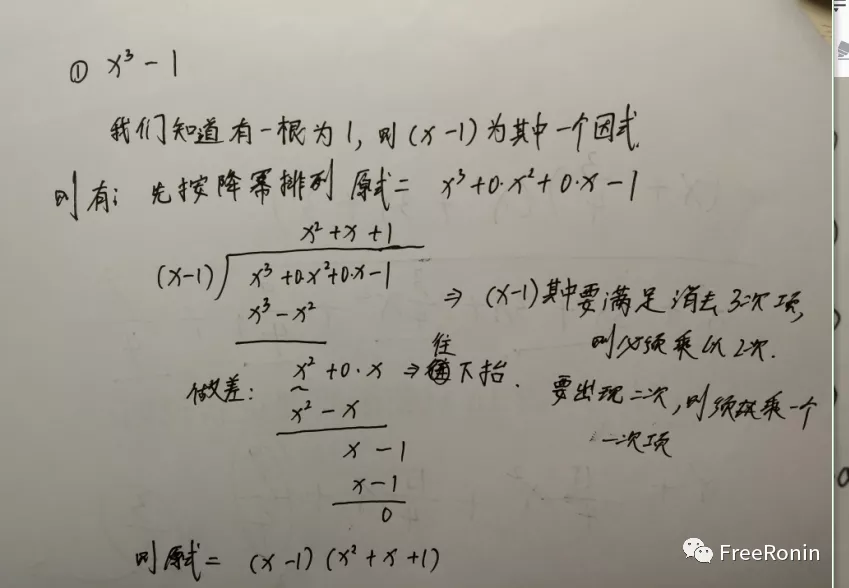 ① x³ - 1
我们知道有一根为1, 则(x-1)为其中一个因式.
则有: 先按降幂排列 原式 = x³+0·x²+0·x-1
x²+x+1
(x-1) x³+0·x²+0·x-1
x³-x²
⇒ (x-1)其中要满足消去3次项,
则必须乘以2次.
做差: x²+0·x ⇒ 往下抬.
要出现二次, 则须乘一个
一次项
x²-x
x-1
x-1
0
则原式 = (x-1)(x²+x+1)
FreeRonin